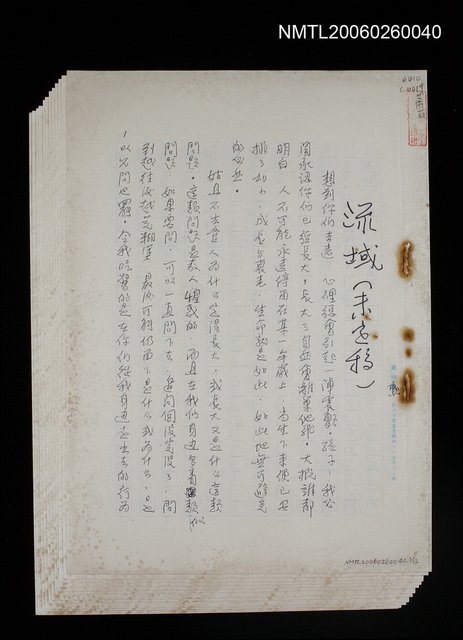 NMTL20060260040
流域（未定稿）
想到你們去遠 心裡總會引起一陣震顫，孩子，我必
須承認你們已經長大，長大了自然會離巢他飛。大概誰都
明白，人不可能永遠停留在某一年歲上，當生下來便已安
排了幼小、成長與衰老，生命就是如此，如此地無可避免
的必然。
姑且不去管人為什么定得長大，或長大又是什么這類
問題。這類問題是教人惶惑的，而且在我們身邊多着類似
問題，如果要問，可以一直問下去，追問個沒完沒了，問
到越往後越是糊塗，最後可能仍留下是什么或為什么，也
以不問也罷。令我吃驚的是在你們從我身邊走出去的行為
NMTL20060260040,1/12